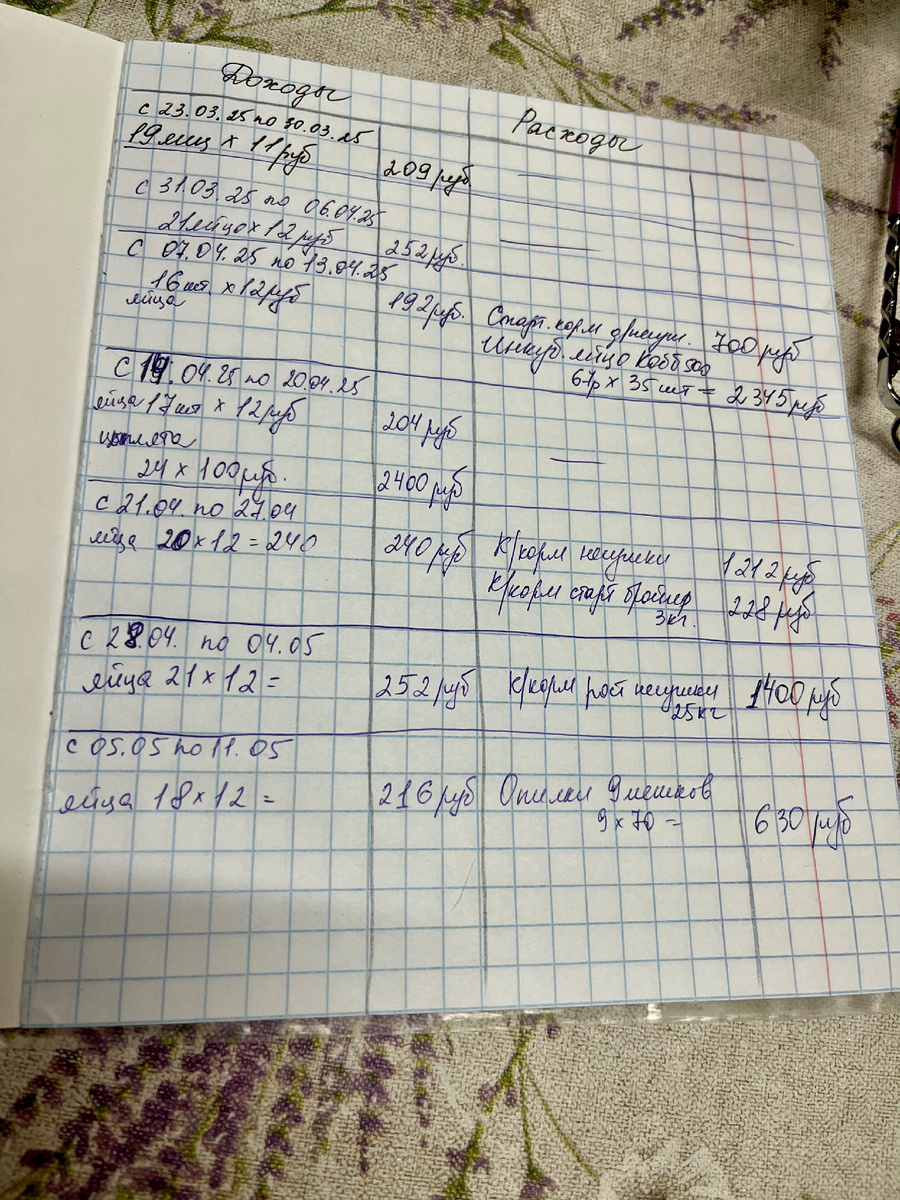 Доходы
Расходы
с 23.03.25 по 30.03.25
19 яиц х 11 руб 209 руб —
с 31.03.25 по 06.04.25
21 яйцо х 12 руб 252 руб. —
с 07.04.25 по 13.04.25
16 шт. х 12 руб 192 руб.
яйца
Старт. корм д/несуш. 700 руб
Инкуб. яйцо Кобб 500
67р х 35 шт = 2345 руб
С 14.04.25 по 20.04.25
яйца 17 шт х 12 руб 204 руб
цыплята —
24 х 100 руб. 2400 руб
с 21.04 по 27.04
яйца 20 х 12 = 240 240 руб К/корм несушки 1212 руб
К/корм старт бройлер 228 руб
3 кг.
с 28.04. по 04.05
яйца 21 х 12 = 252 руб К/корм рост несушки 1400 руб
25 кг
с 05.05 по 11.05
яйца 18 х 12 = 216 руб Опилки 9 мешков
9 х 70 = 630 руб